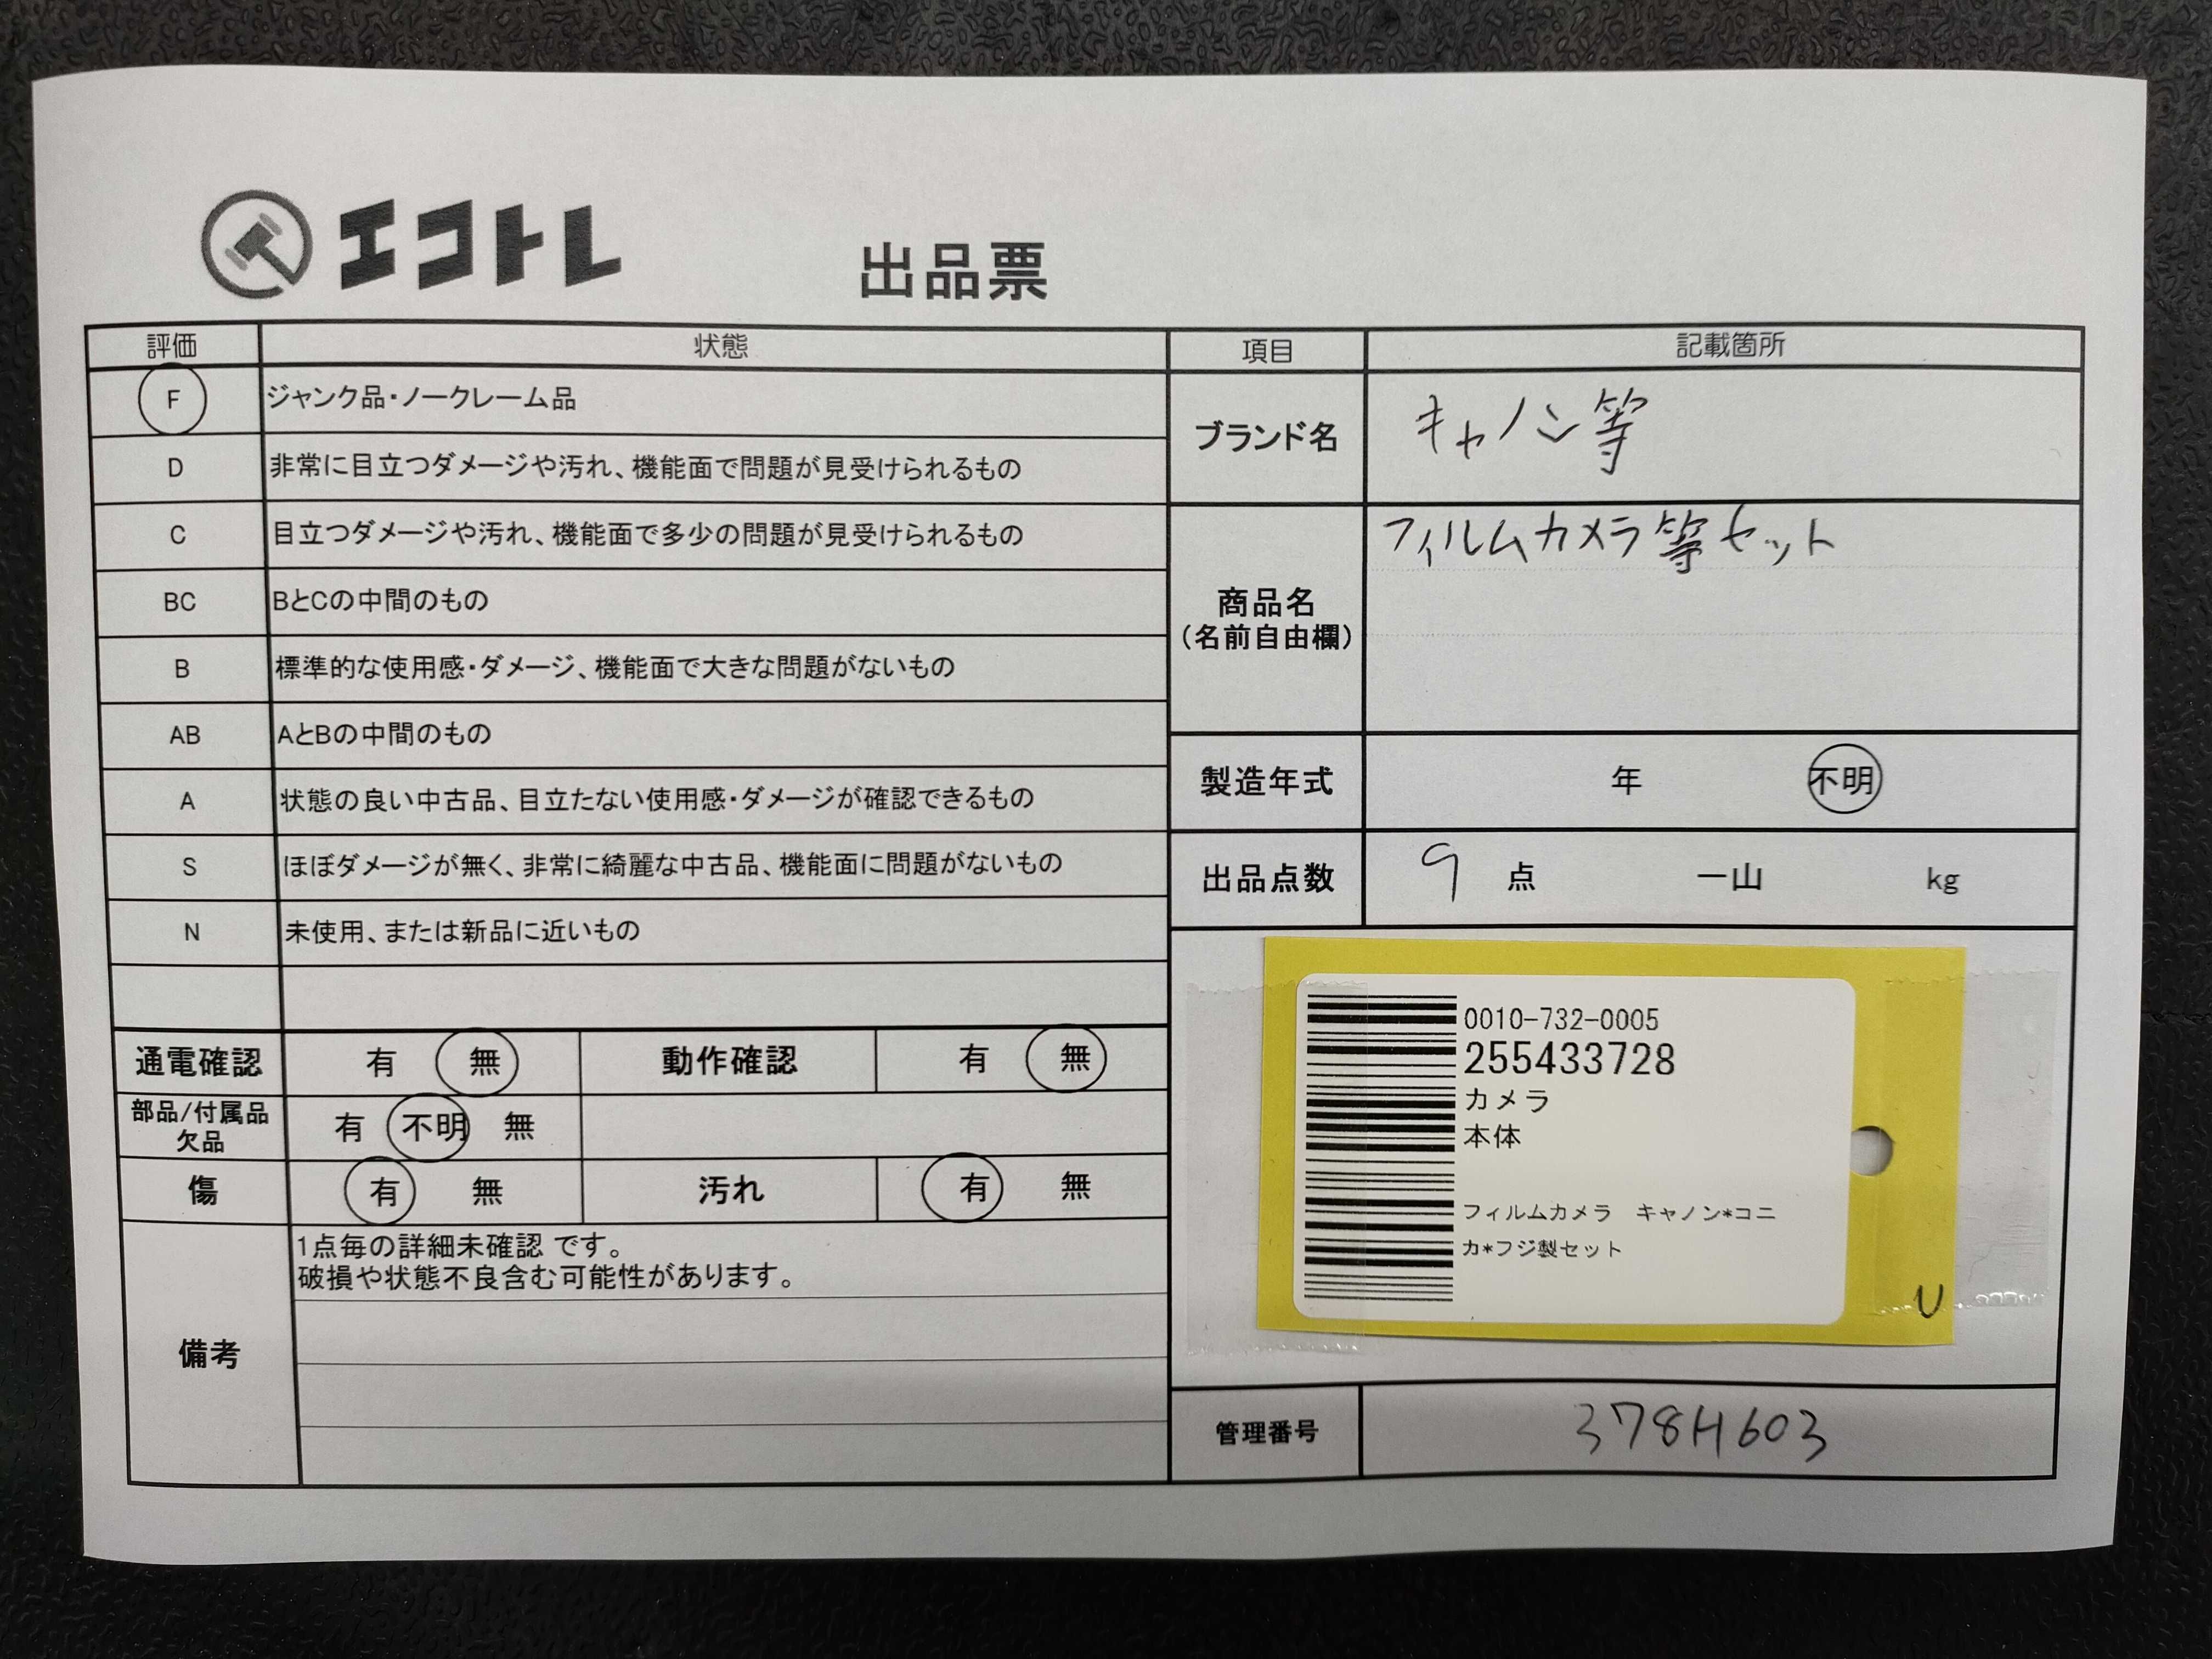 エコトレ
出品票
評価 状態
F ジャンク品・ノークレーム品
D 非常に目立つダメージや汚れ、機能面で問題が見受けられるもの
C 目立つダメージや汚れ、機能面で多少の問題が見受けられるもの
BC BとCの中間のもの
B 標準的な使用感・ダメージ、機能面で大きな問題がないもの
AB AとBの中間のもの
A 状態の良い中古品、目立たない使用感・ダメージが確認できるもの
S ほぼダメージが無く、非常に綺麗な中古品、機能面に問題がないもの
N 未使用、または新品に近いもの
通電確認 有 無 動作確認 有 無
部品/付属品
欠品 有 不明 無
傷 有 無 汚れ 有 無
備考
1点毎の詳細未確認 です。
破損や状態不良含む可能性があります。
項目 記載箇所
ブランド名 キャノン等
商品名
(名前自由欄)
フィルムカメラ等セット
製造年式 年 不明
出品点数 9 点 一山 kg
0010-732-0005
255433728
カメラ
本体
フィルムカメラ キャノン*コニ
カ*フジ製セット
U
管理番号 378H603